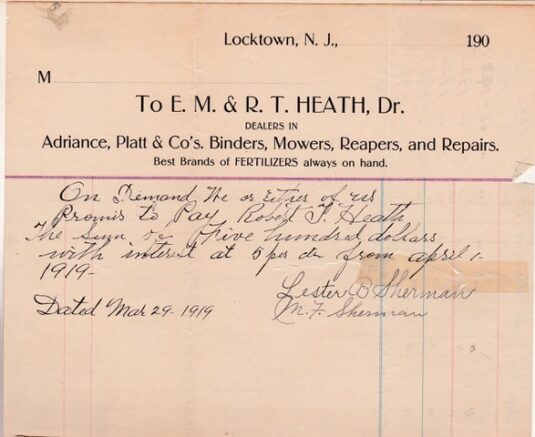 Locktown, N. J., 190
M
To E. M. & R. T. HEATH, Dr.
DEALERS IN
Adriance, Platt & Co's. Binders, Mowers, Reapers, and Repairs.
Best Brands of FERTILIZERS always on hand.
On Demand We or Either of us
Promis to Pay Robert T. Heath
The Sum of Five hundred dollars
with interest at 5 per from april 1-
1919-
Lester B Sherman
Dated Mar 29- 1919
M. F. Sherman